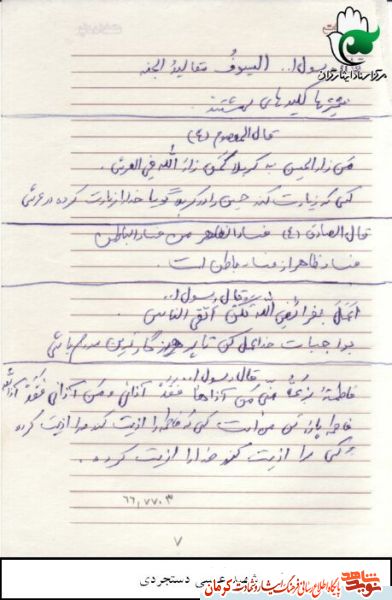 مرکز اسناد ایثارگران
رسول ا.. السیوفُ مقالیدُ الجنه
شمشیرها کلیدهای بهشتند.
قال المعصوم (ع)
مَن زار الحسین به کربلا کَمَن زارَ اللّٰه فی العرش.
کسی که زیارت کند حسین را در کربلا گویا خدا را زیارت کرده در عرش
قال الصادق (ع) فساد الظاهر من فساد الباطن
فساد ظاهر از فساد باطن است.
قال رسول ا..
اعمَل بفرائضِ اللّٰه تکُن أتقی الناس.
بواجبات خدا عمل کن تا پرهیزگارترین مردم باشی
قال رسول ا...
فاطمةُ بَضعَةُ مِنّی مَن آذاها فَقَد آذانی و مَن آذانی فَقَد آذَاللّٰه
فاطمه پاره تن من است کسی که فاطمه را اذیت کند مرا اذیت کرده
و کسی مرا اذیت کند خدا را اذیت کرده.
۶۶,۷۷۰۳
۷
شهید عباسی دستجردی
شاهد
نوید
پایگاه اطلاع رسانی فرهنگ ایثار و شهادت کرمان